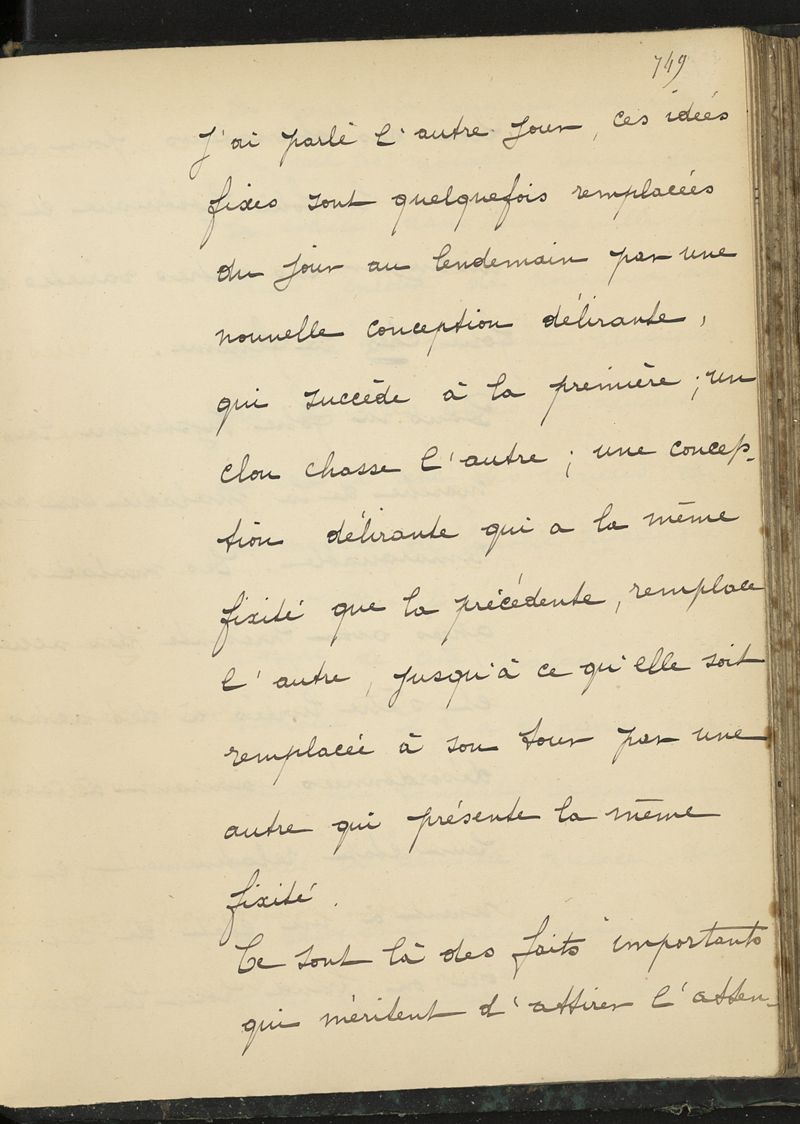 749
j'ai parlé l'autre jour, ces idées
fixes sont quelquefois remplacées
du jour au lendemain par une
nouvelle conception délirante,
qui succède à la première ; un
clou chasse l'autre ; une concep-
tion délirante qui a la même
fixité que la précédente, remplace
l'autre, jusqu'à ce qu'elle soit
remplacée à son tour par une
autre qui présente la même
fixité.
Ce sont là des faits importants
qui méritent d'attirer l'atten-